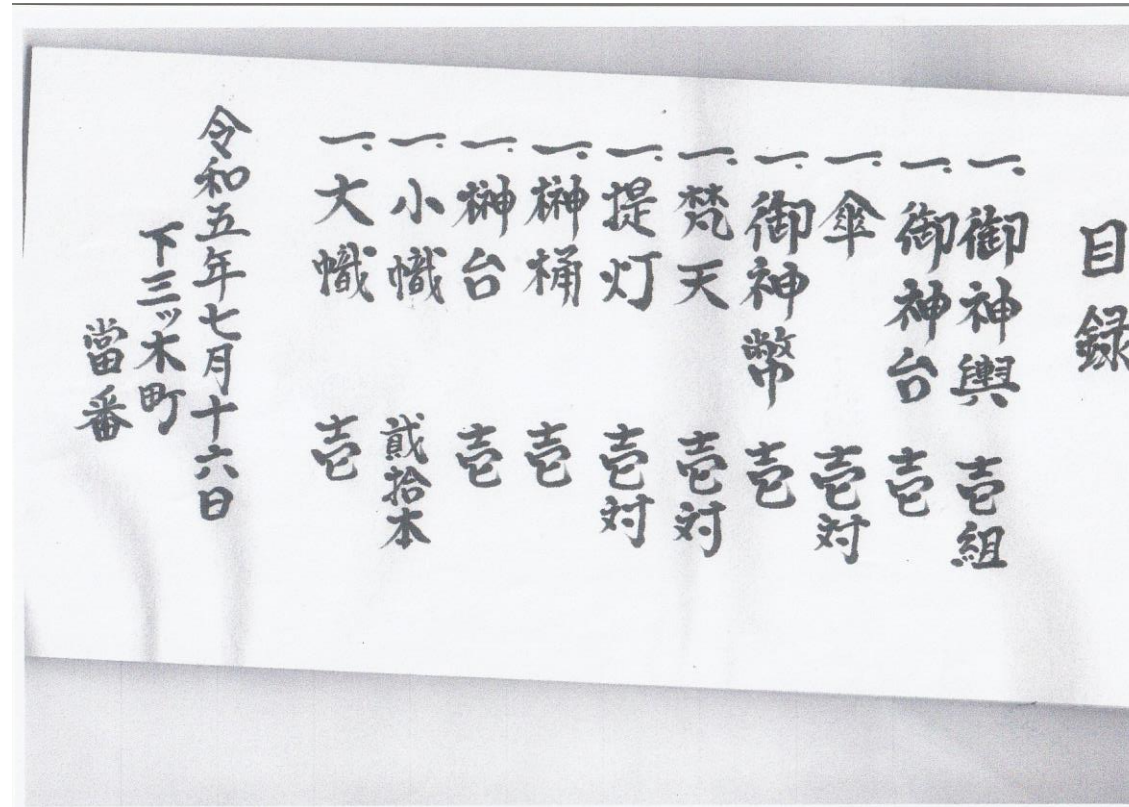 目録
一、御神輿 壱組
一、御神台 壱
一、傘 壱対
一、御神幣 壱
一、梵天 壱対
一、提灯 壱対
一、榊桶 壱
一、榊台 壱
一、小幟 貮拾本
一、大幟 壱
令和五年七月十六日
下三ッ木町
當番